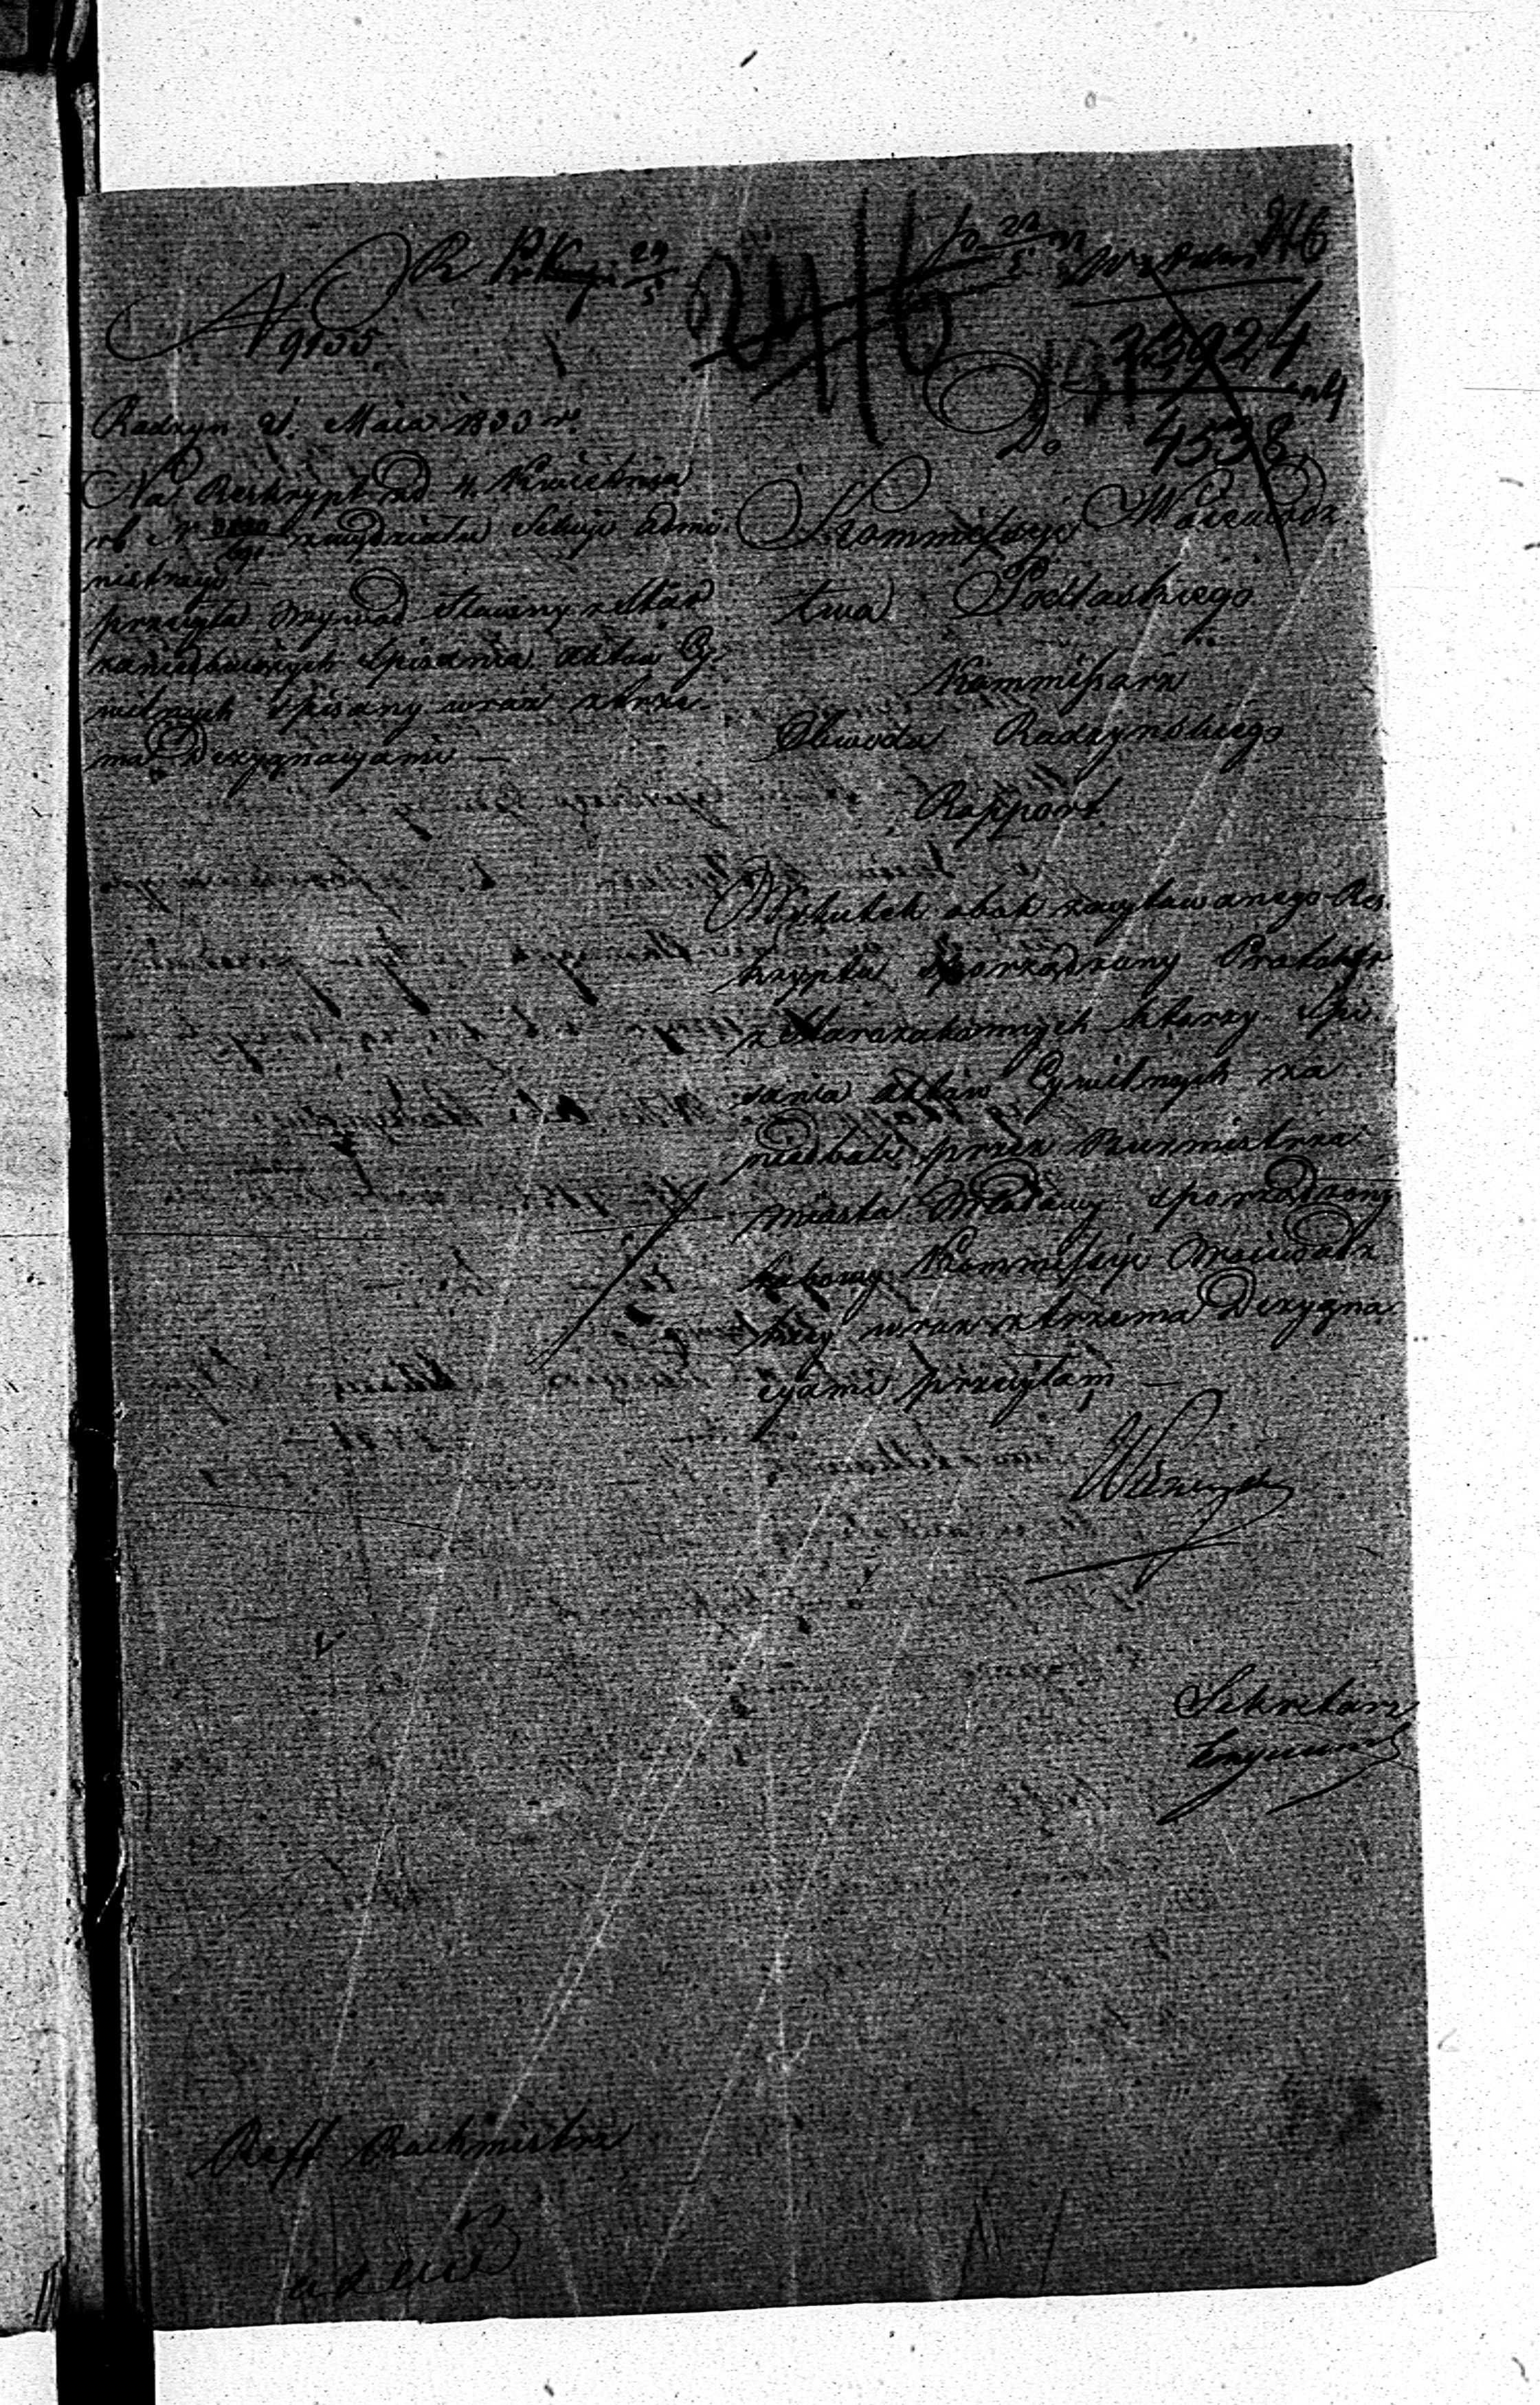 N 9135
246
246
25924
4538
Radzyn d. Maia 1833 r.
Na Reskrypt od 4. Kwietnia
rb N wydziału Sekcyi Admi
nistracyi —
przesyła Wywod Sławny z Star
zaniedbujących Spisania Aktów Cy
wilnych spisany wraz z trze-
ma Dezygnacyami —
Do
Kommissyi Woiewodz
twa Podlaskiego
Kommissarz
Obwodu Radzynskiego
Rapport
W skutek obok zacytowanego Res
kryptu sporządzony Protokuł
z Starozakonnych którzy Spi
sania aktów Cywilnych za
niedbali, przez Burmistrza
miasta Włodawy sporządzony
Kommissyi Woiewodz
kiey wraz z trzema Dezygna
cyami przesyłam —
Sekretarz
Reff. Rachmistrz